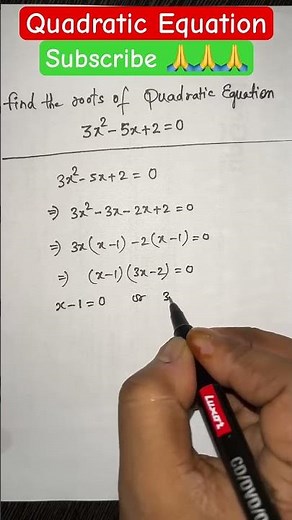 Quadratic Equation
Subscribe 🙏🙏🙏
find the roots of Quadratic Equation
3x²-5x+2=0
3x²-5x+2=0
⇒ 3x²-3x-2x+2=0
⇒ 3x(x-1)-2(x-1)=0
⇒ (x-1)(3x-2)=0
x-1=0 or 3
Luxor
CD/DVD/